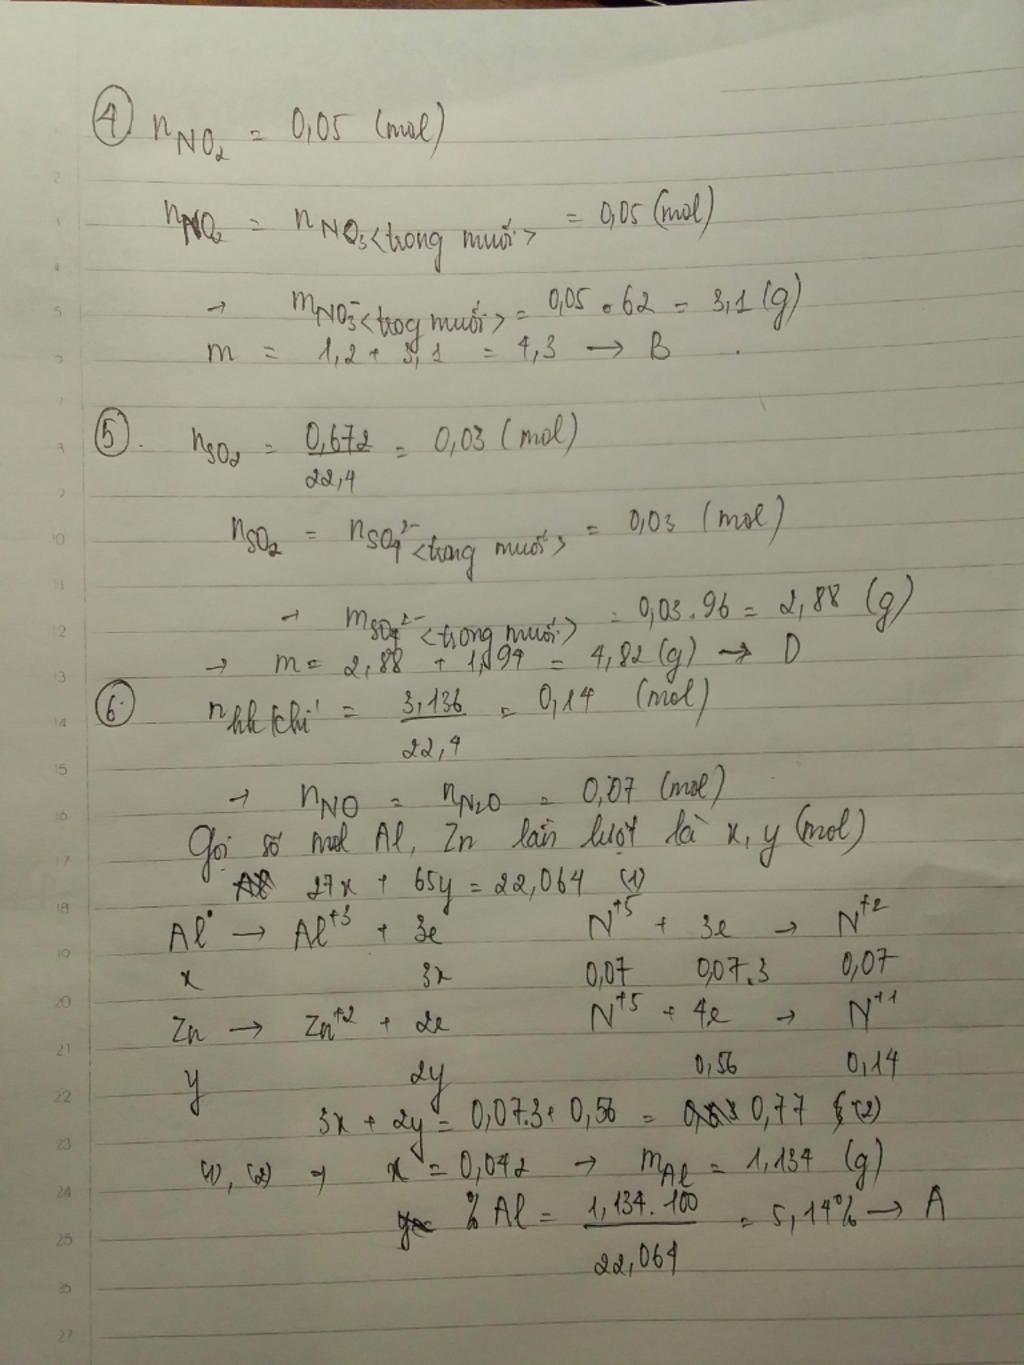 ④ nNO₂ = 0,05 (mol)
nNO₂ = nNO₃<trong muối> = 0,05 (mol)
→ mNO₃⁻<trog muối> = 0,05 . 62 = 3,1 (g)
m = 1,2 + 3,1 = 4,3 → B .
⑤. nSO₂ = 0,672/22,4 = 0,03 (mol)
nSO₂ = nSO₄²⁻<trong muối> = 0,03 (mol)
→ mSO₄²⁻<trong muối> = 0,03.96 = 2,88 (g)
→ m = 2,88 + 1,94 = 4,82 (g) → D
⑥ nhh khí = 3,136/22,4 = 0,14 (mol)
→ nNO = nN₂O = 0,07 (mol)
Gọi số mol Al, Zn lần lượt là x, y (mol)
27x + 65y = 22,064 (1)
Al° → Al⁺³ + 3e N⁺⁵ + 3e → N⁺²
x 3x 0,07 0,07.3 0,07
Zn → Zn⁺² + 2e N⁺⁵ + 4e → N⁺¹
y 2y 0,56 0,14
3x + 2y = 0,07.3 + 0,56 = 0,77 (2)
(1), (2) → x = 0,042 → mAl = 1,134 (g)
% Al = 1,134.100/22,064 = 5,14% → A